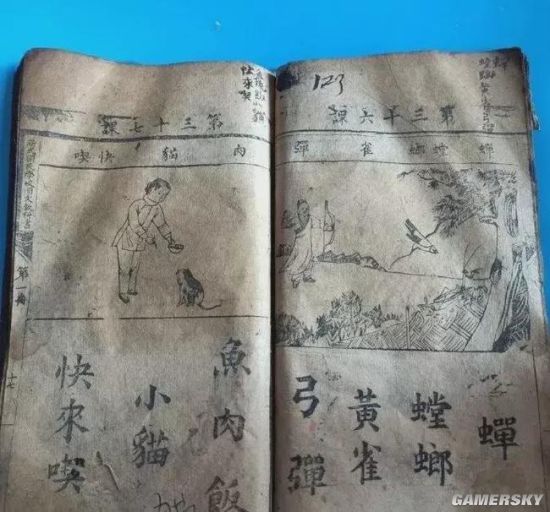 123
第三十六課
蟬 螳 螂 雀 彈
蟬
螳螂
黃雀
弓彈
快來喫
第三十七課
肉 貓 快 喫
魚肉飯
小貓
快來喫
第一冊
GAMERSKY